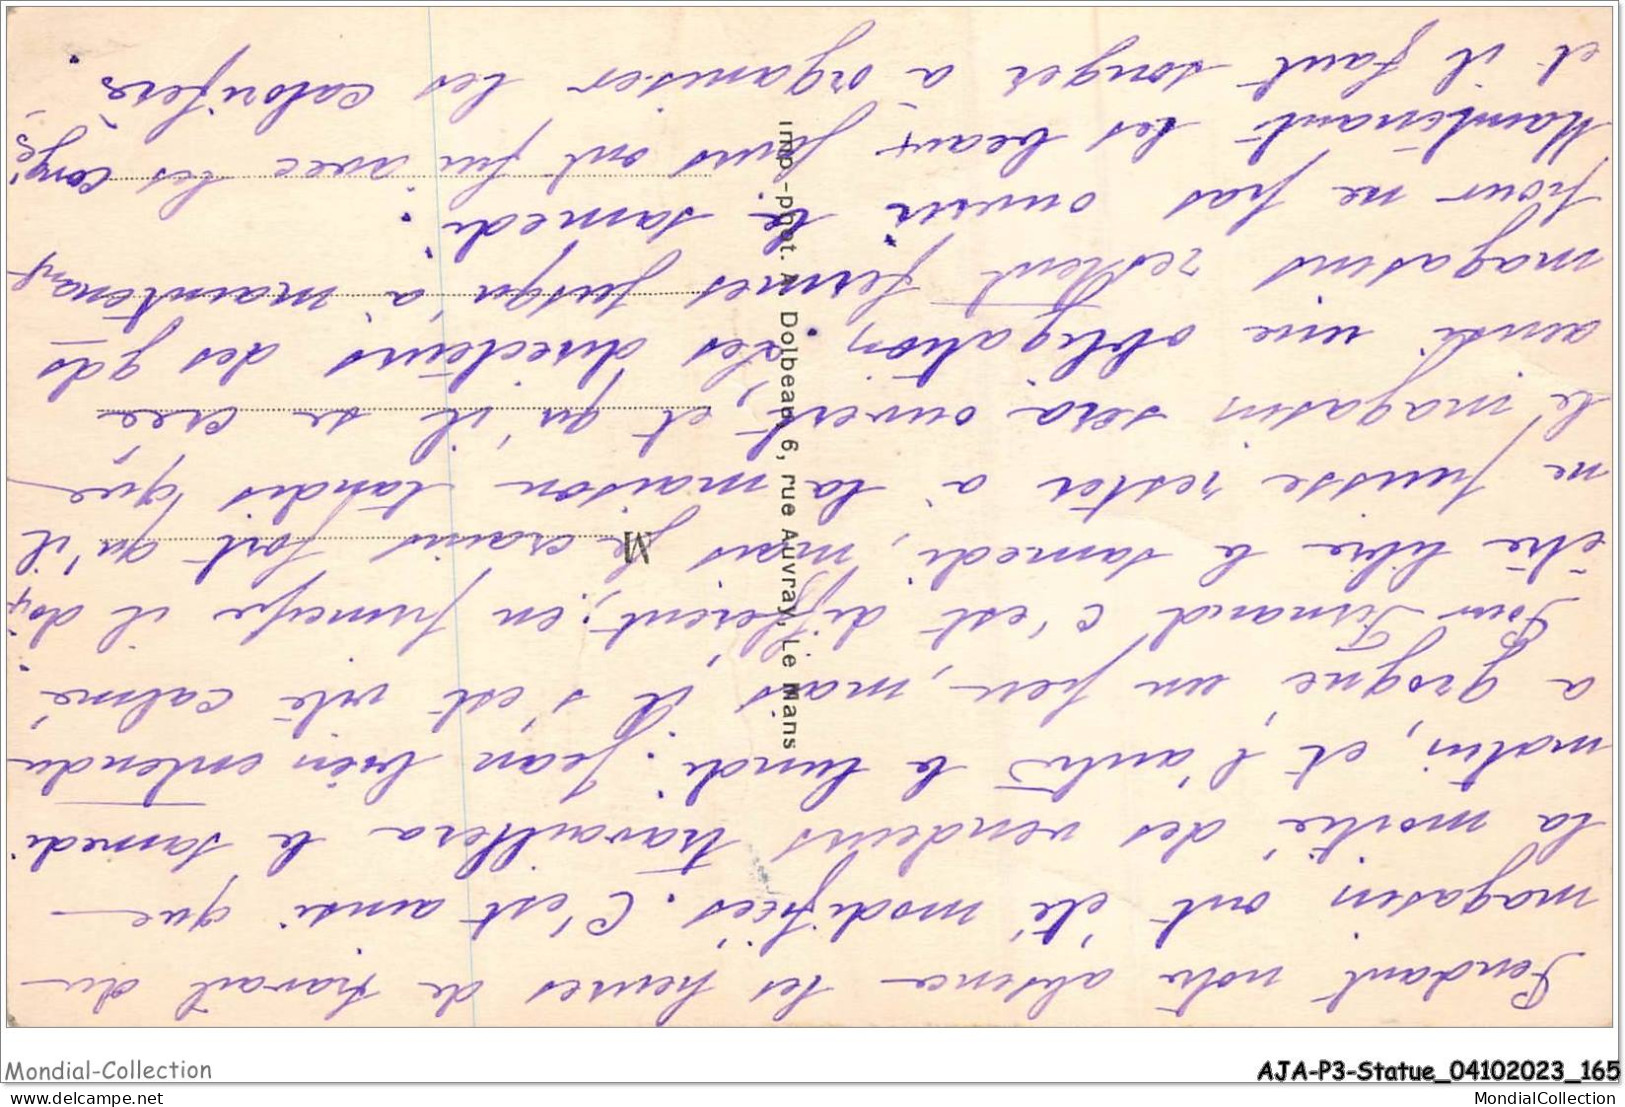 Pendant notre absence les heures de travail du
magasin ont été modifiées. C'est ainsi que
la moitié des vendeurs travaillera le samedi
matin, et l'autre le lundi. Jean bien entendu
a grogné un peu, mais il s'est vite calmé.
Pour Fernand c'est différent; en principe il doit
être libre le samedi, mais je crains fort qu'il
ne puisse rester à la maison tandis que
le magasin sera ouvert, et qu'il se crée
ainsi une obligation. Les directeurs des gds
magasins restent fermes jusqu'à maintenant
pour ne pas ouvrir le samedi.
Maintenant les beaux jours ont fui avec les congés,
et il faut songer à organiser les calorifères.
Imp.-phot. A. Dolbeau, 6, rue Auvray, Le Mans
M
Mondial-Collection
AJA-P3-Statue_04102023_165
delcampe.net
MondialCollection